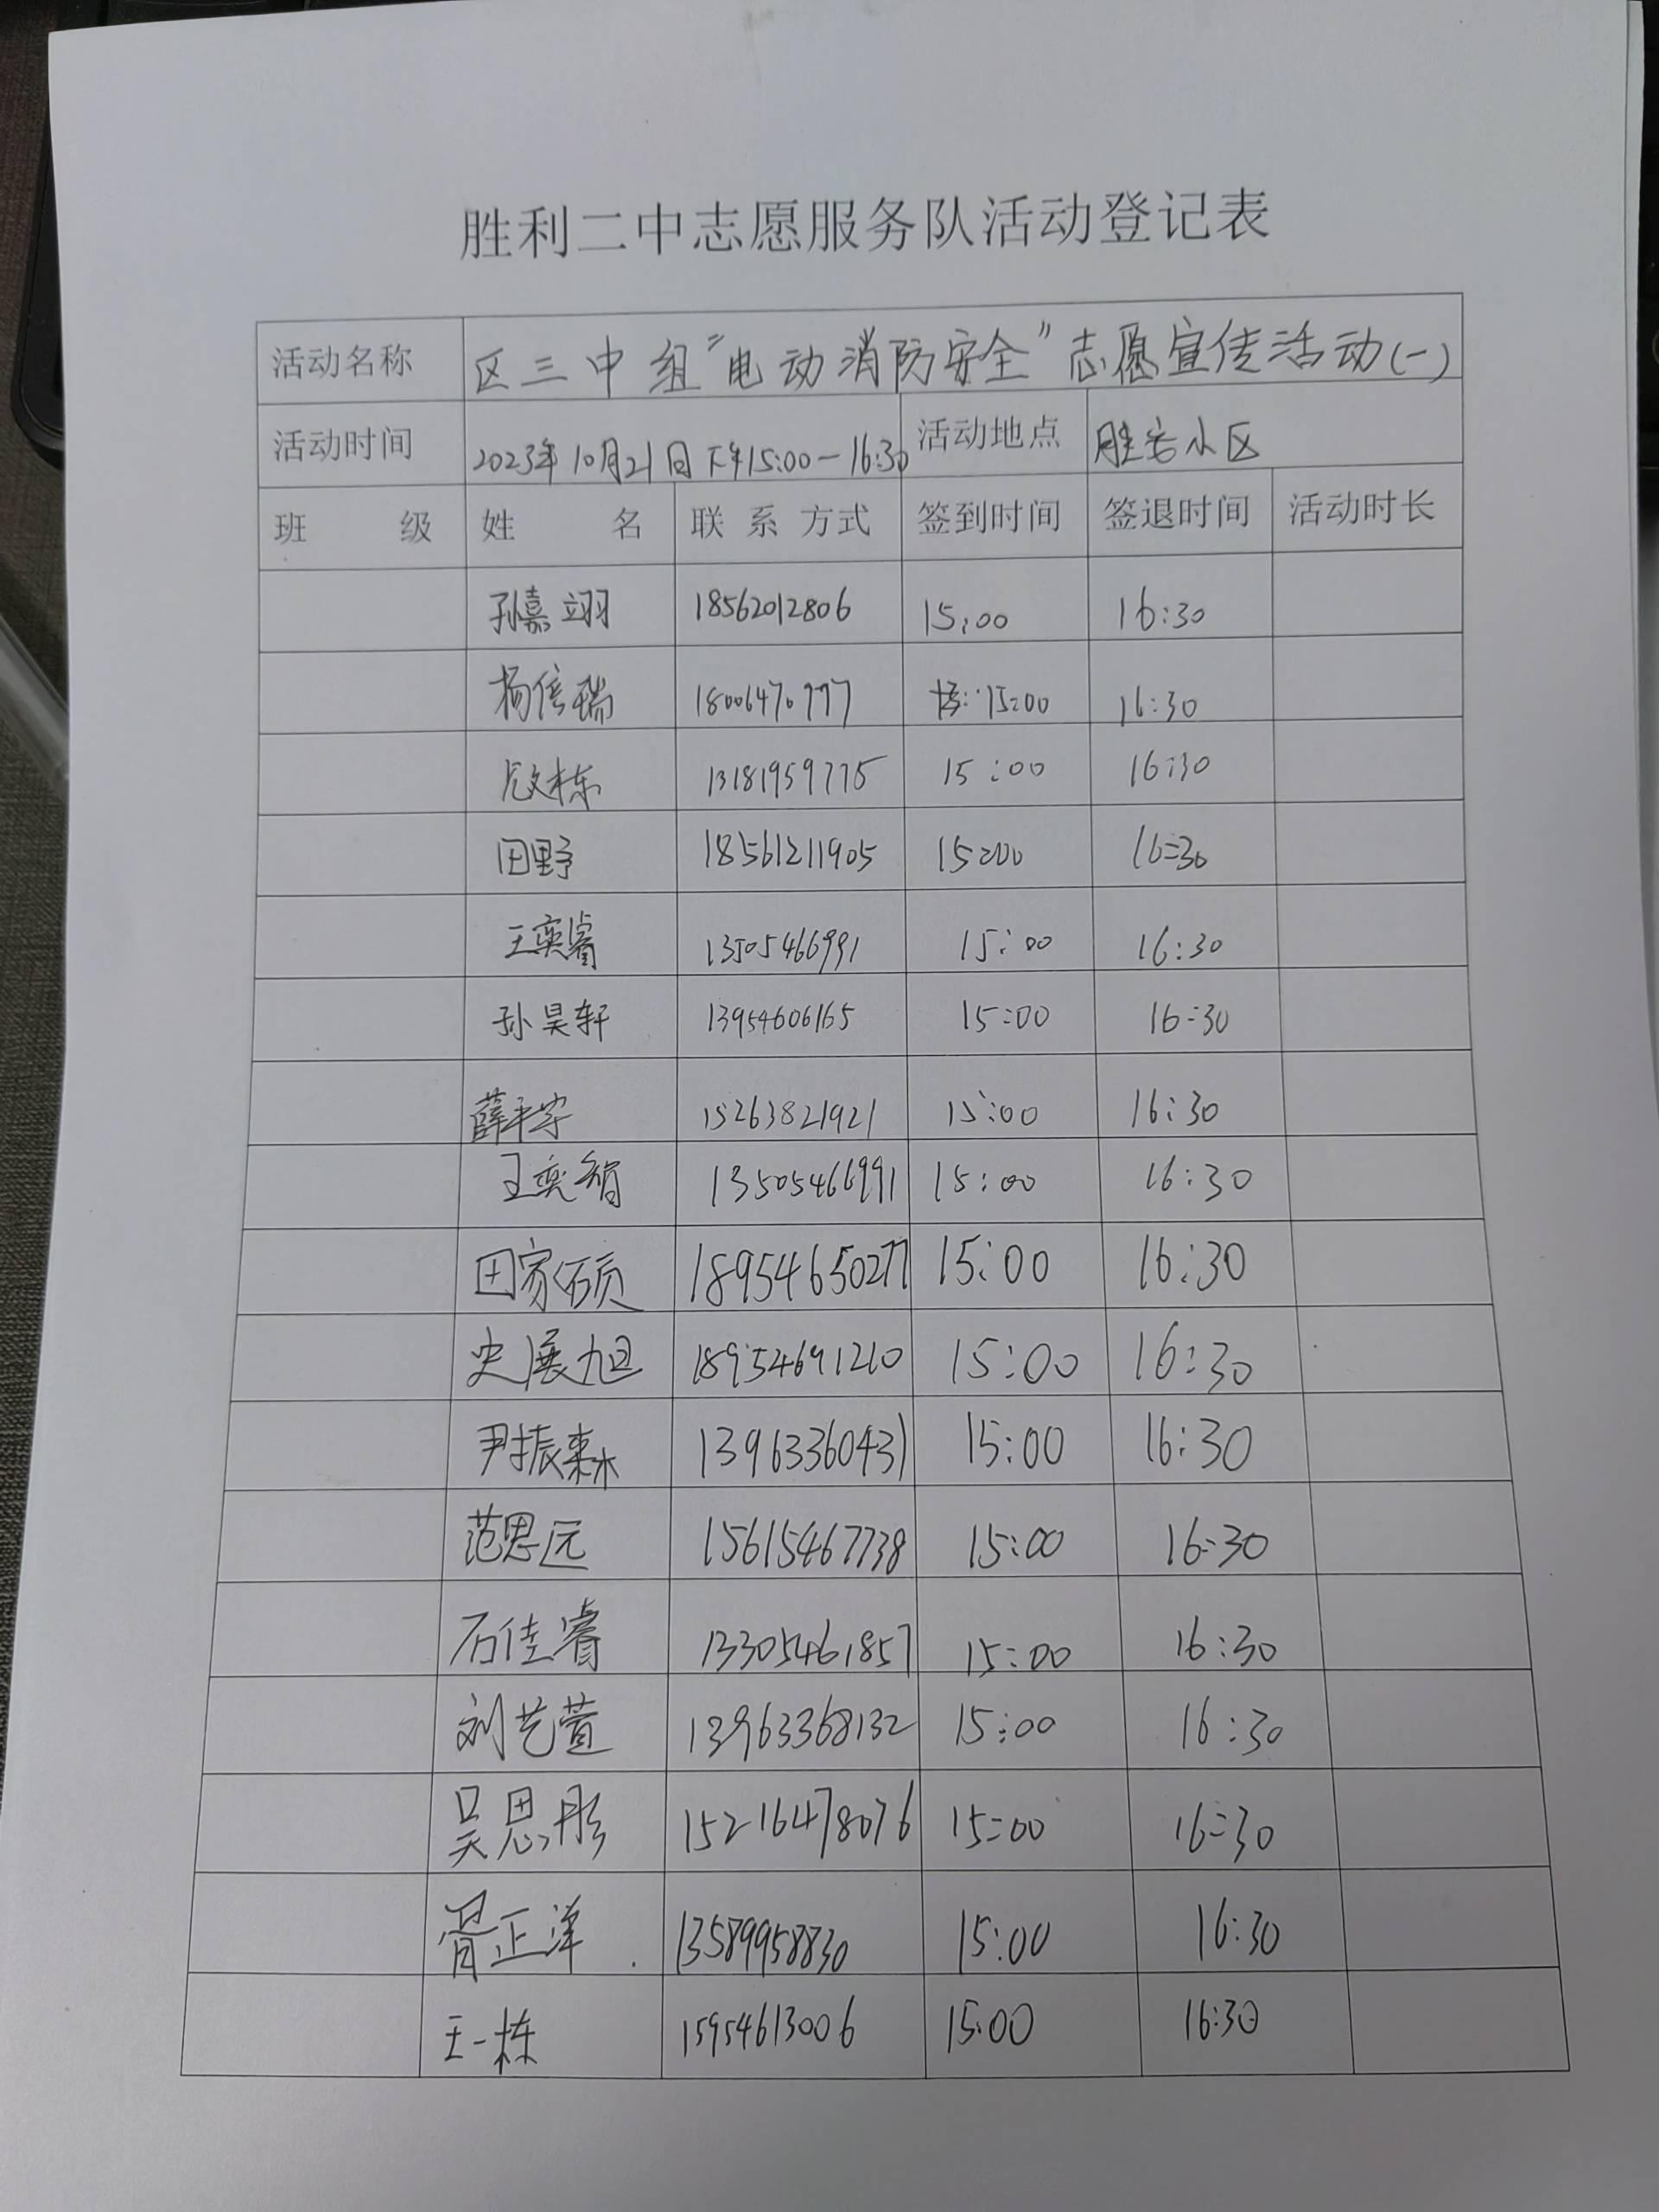 胜利二中志愿服务队活动登记表
活动名称 区三中组“电动消防安全”志愿宣传活动(一)
活动时间 2023年10月21日下午15:00-16:30 活动地点 胜宏小区
班 级 姓 名 联系方式 签到时间 签退时间 活动时长
孙嘉翊 18562012806 15:00 16:30
杨信瑞 18006470777 15:00 16:30
13181959775 15:00 16:30
田野 18561211905 15:00 16:30
王奕睿 13505466991 15:00 16:30
孙昊轩 13954606165 15:00 16:30
薛平安 15263821921 15:00 16:30
王奕智 13505466991 15:00 16:30
田家硕 18954650277 15:00 16:30
史展旭 18954691210 15:00 16:30
尹振森 13963360431 15:00 16:30
范思远 15615467738 15:00 16:30
石佳睿 13305461857 15:00 16:30
刘艺萱 13963368132 15:00 16:30
吴思彤 15216478076 15:00 16:30
正洋 13589958830 15:00 16:30
王一栋 15954613006 15:00 16:30